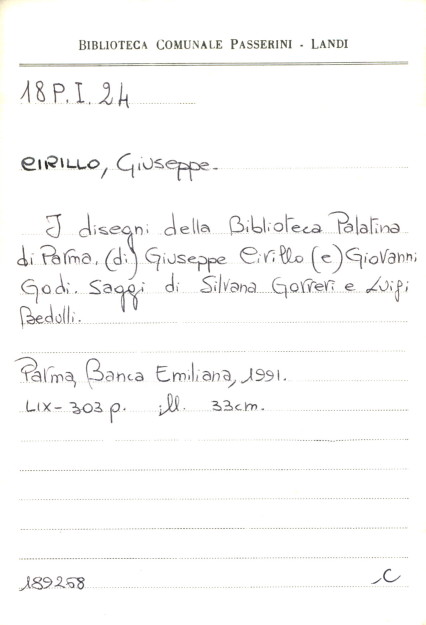 BIBLIOTECA COMUNALE PASSERINI - LANDI
18 P. I. 24
CIRILLO, Giuseppe.
I disegni della Biblioteca Palatina
di Parma. (di) Giuseppe Cirillo (e) Giovanni
Godi. Saggi di Silvana Gorreri e Luigi
Bedulli.
Parma, Banca Emiliana, 1991.
LIX - 303 p. ill. 33cm.
189258 C